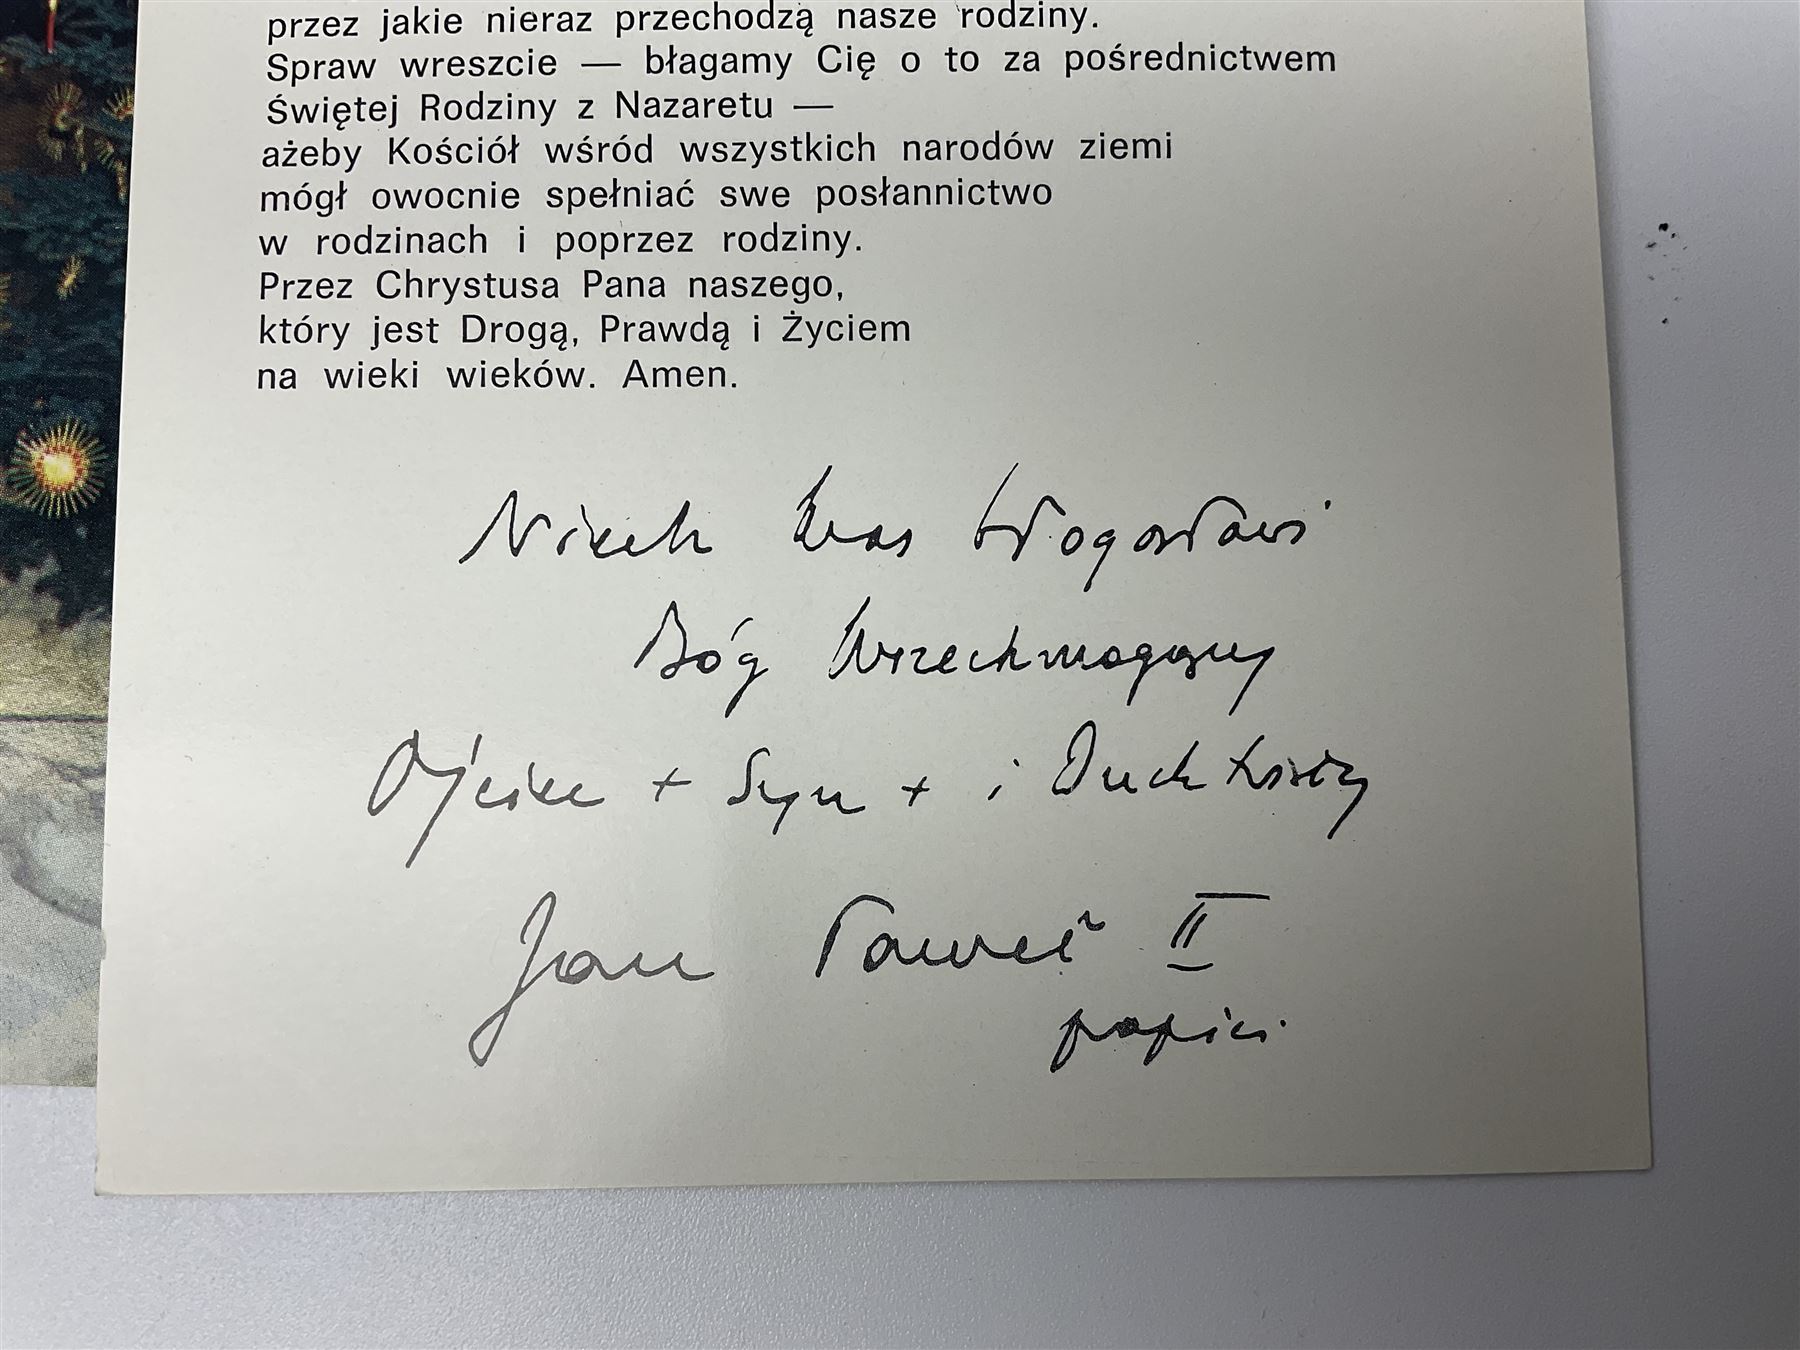 przez jakie nieraz przechodzą nasze rodziny.
Spraw wreszcie — błagamy Cię o to za pośrednictwem
Świętej Rodziny z Nazaretu —
ażeby Kościół wśród wszystkich narodów ziemi
mógł owocnie spełniać swe posłannictwo
w rodzinach i poprzez rodziny.
Przez Chrystusa Pana naszego,
który jest Drogą, Prawdą i Życiem
na wieki wieków. Amen.
Niech Was błogosławi
Bóg Wszechmogący
Ojciec + Syn + i Duch Święty
Jan Paweł II
papież